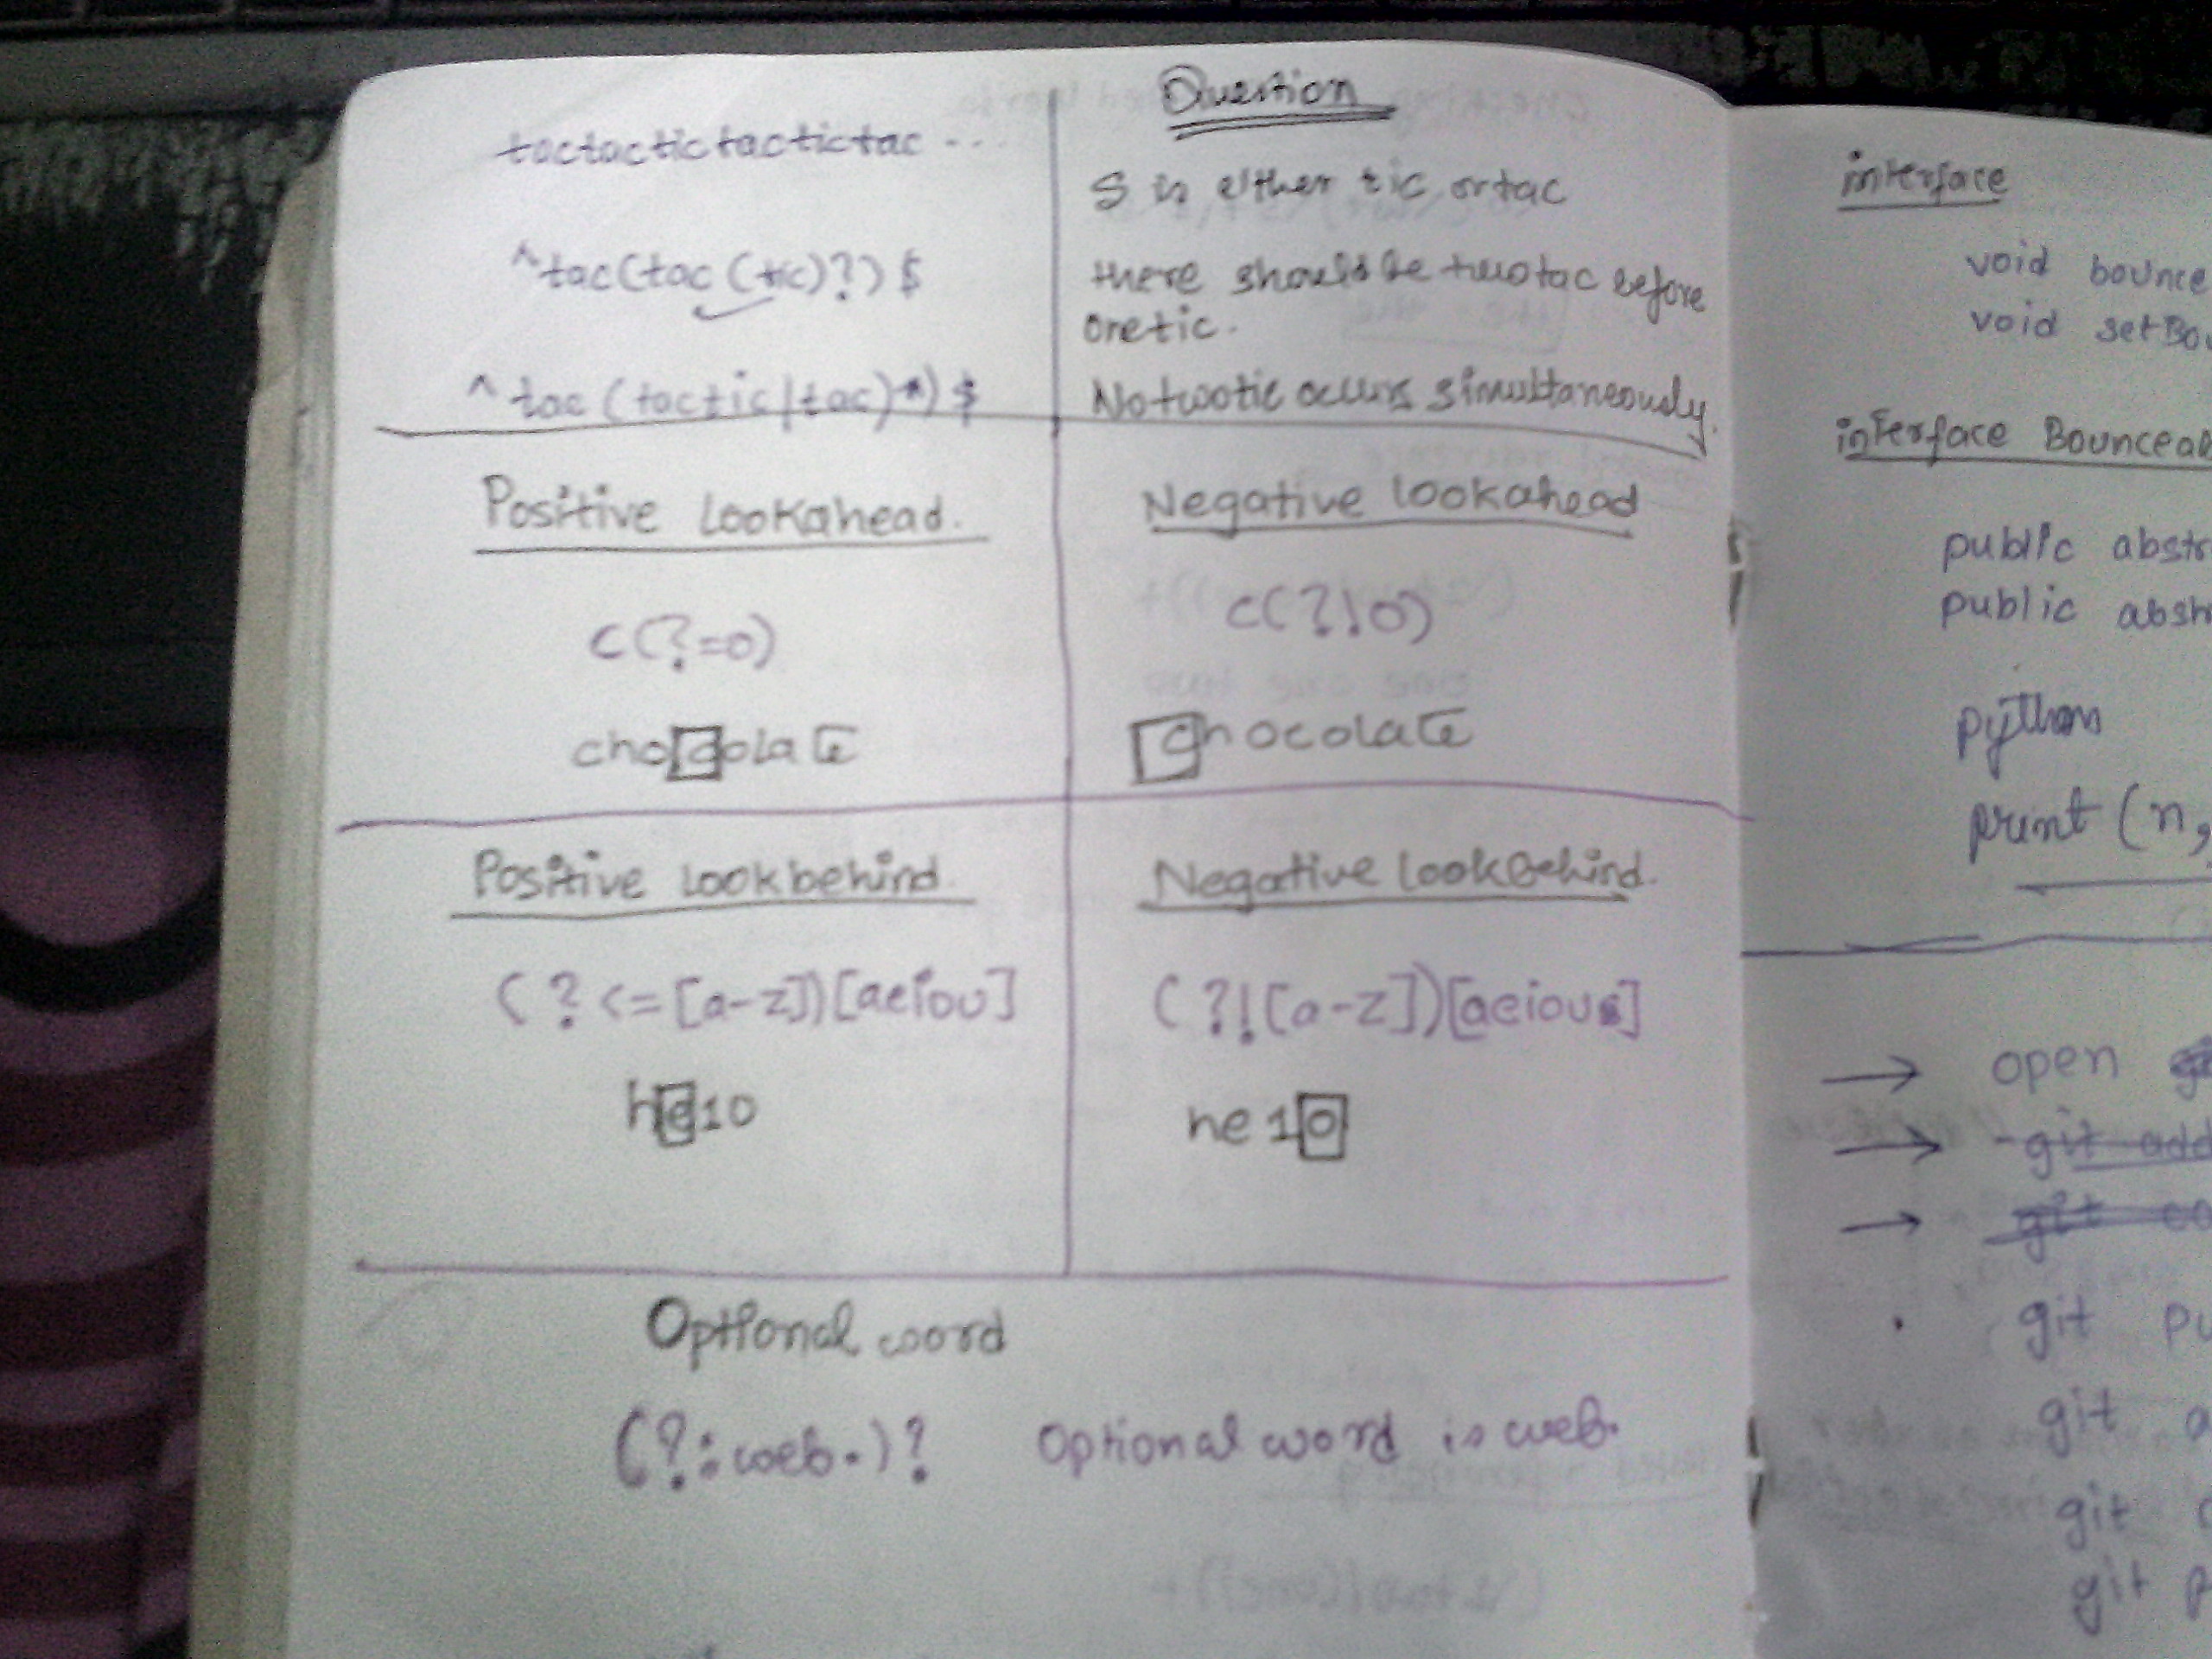 tactactictactictac...
^tac(tac(tic)?)$
^tac(tactic|tac)*)$
Question
S is either tic or tac
there should be two tac before
one tic.
No two tic occurs simultaneously.
Positive Lookahead.
c(?=o)
chocolate
Negative lookahead
c(?!o)
chocolate
Positive lookbehind.
(?<=[a-z])[aeiou]
he10
Negative lookbehind.
(?![a-z])[aeiou]
he10
Optional word
(?:web.)? Optional word is web.
interface
void bounce
void setBou
interface Bounceab
public abstr
public abstr
python
print(n,
→ open
→ git add
→ git co
git pu
git a
git c
git p